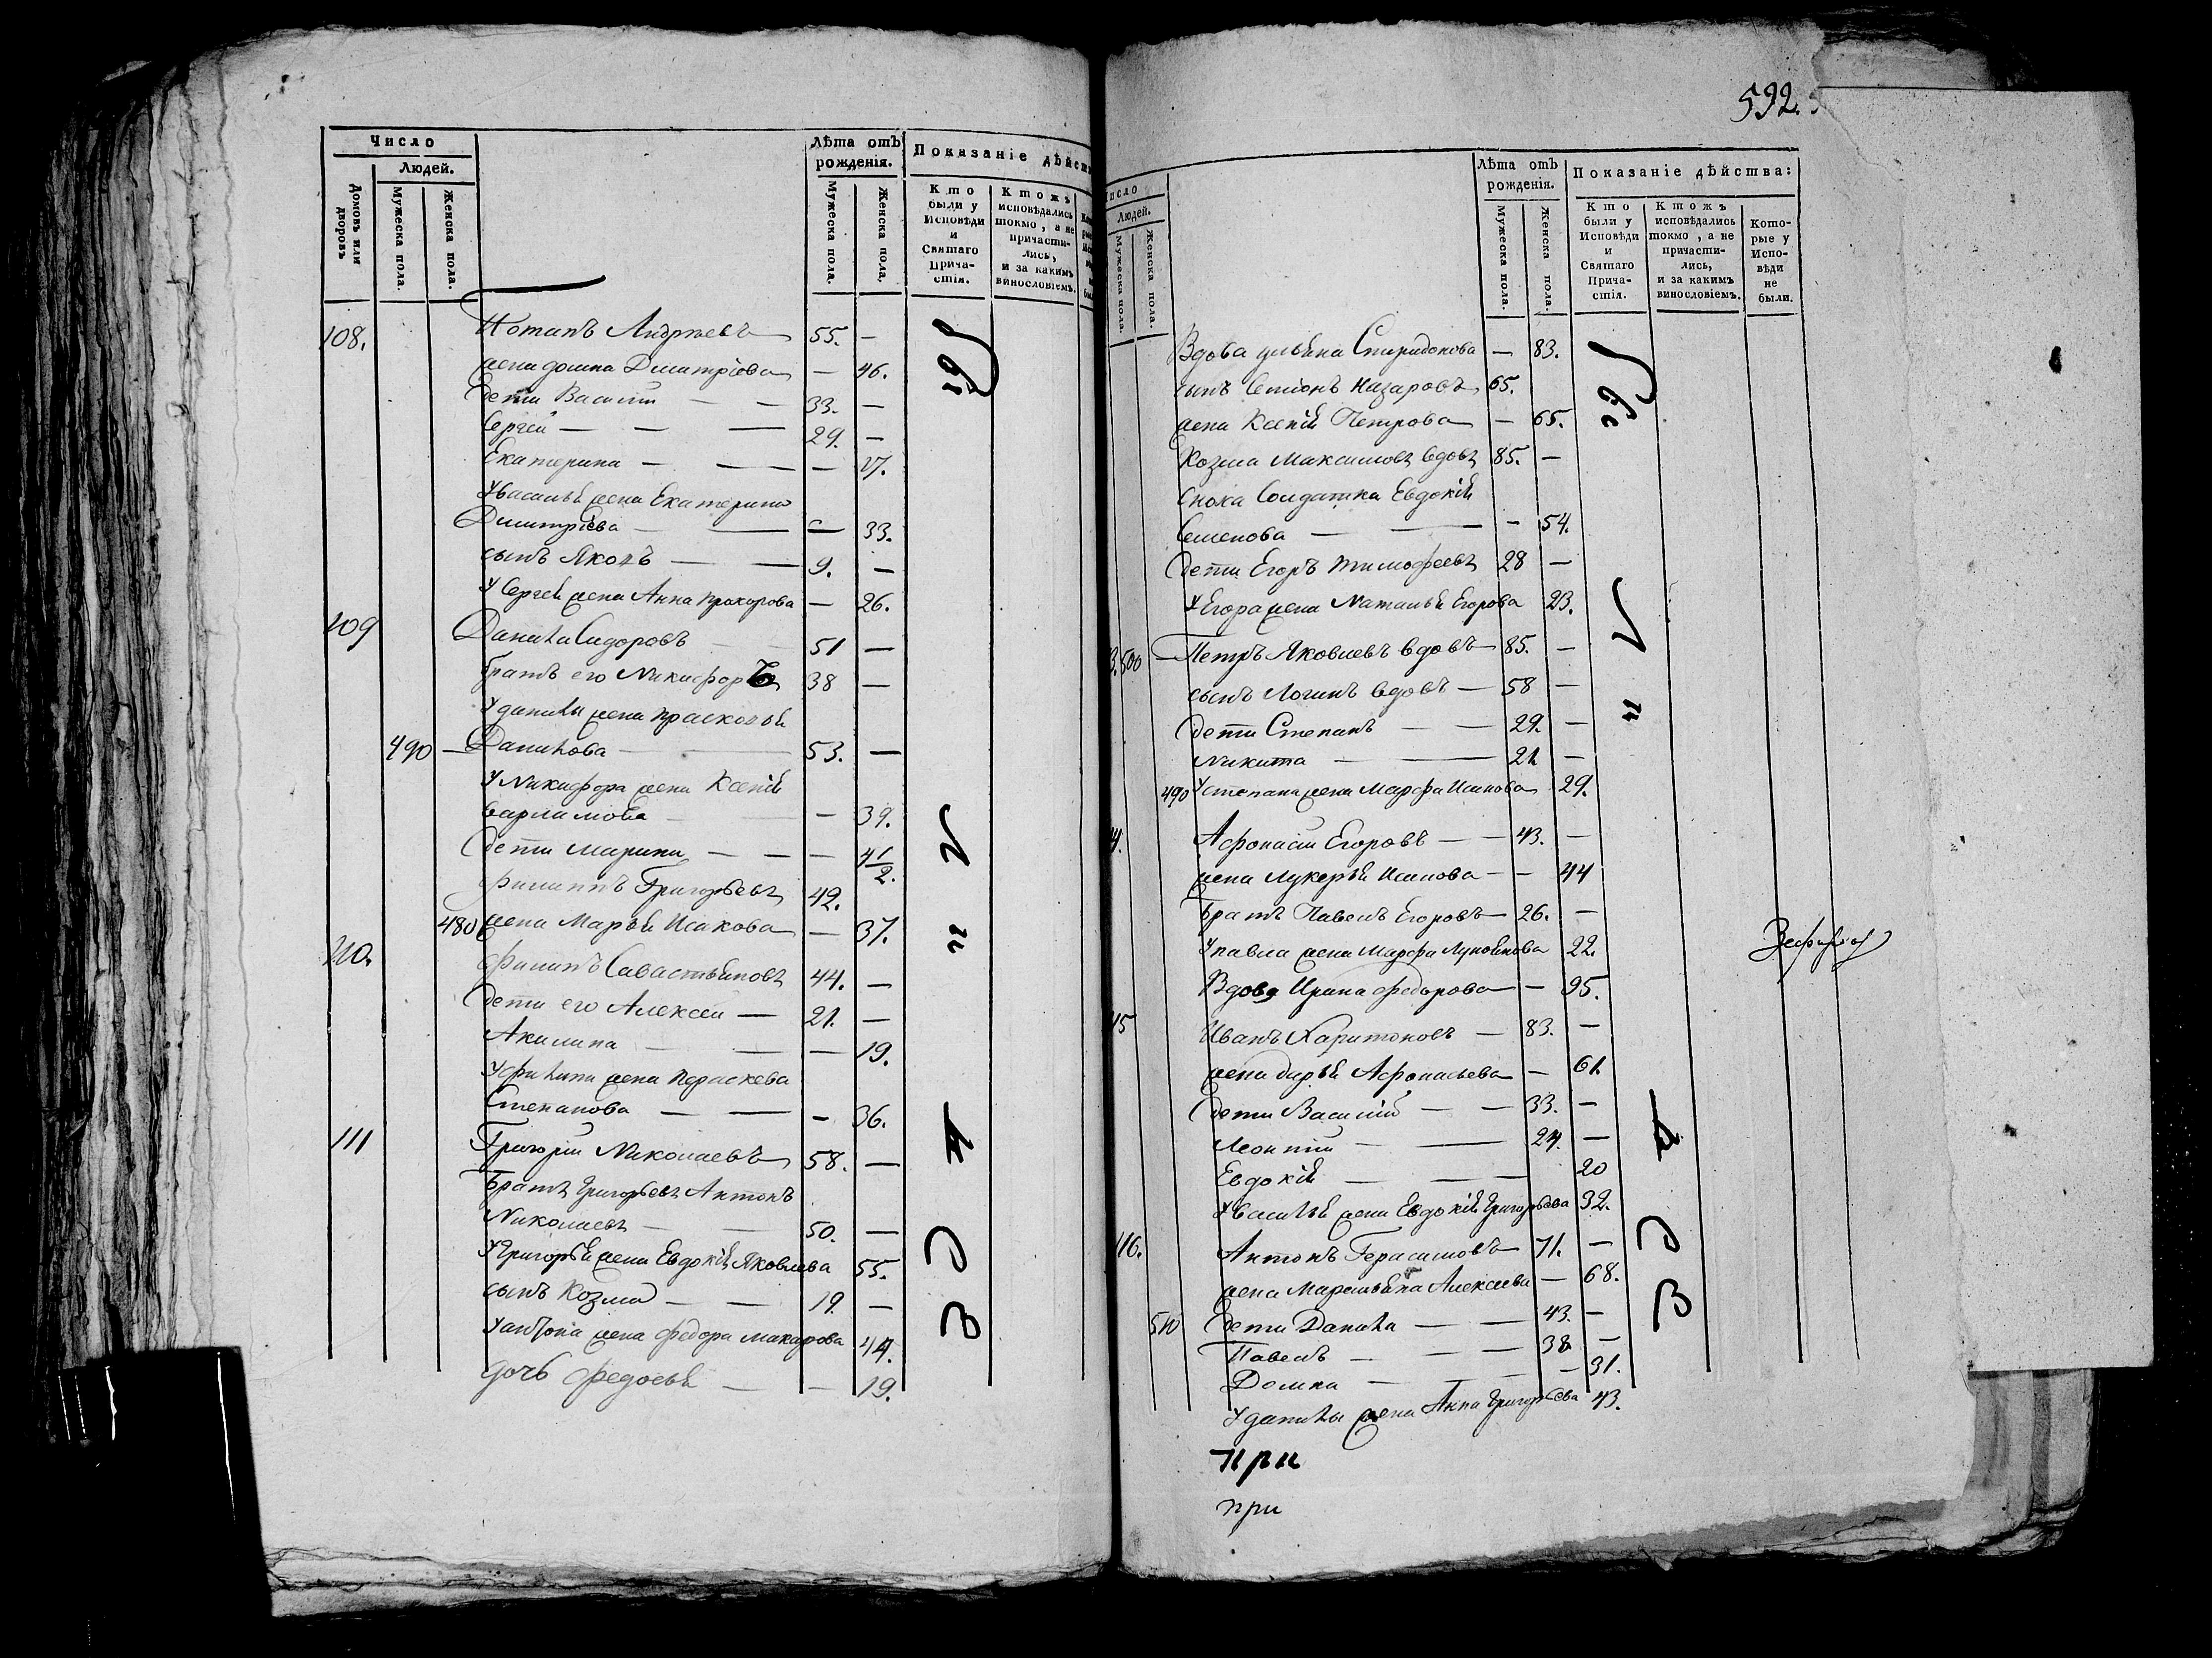 Число
Людей.
Домовъ или дворовъ
Мужеска пола.
Женска пола.
Лѣта отъ рожденія.
Мужеска пола.
Женска пола.
Показаніе дѣйст
Кто были у Исповѣди и Святаго Прича-стія.
Ктожъ исповѣдались токмо, а не причасти-лись, и за какимъ винословіемъ.
108. Потапъ Андреевъ 55. —
жена домна Дмитріова — 46.
дети Василий — — 33. —
Сергеи — — — 29. —
Екатерина — — — — 17.
У василья жена Екатерина
Дмитріева — — — 33.
сынъ Яковъ — — 9. —
У Сергея жена Анна прахорова — 26.
109 Данила Сидоровъ 51 —
братъ его Никифоръ 38 —
У данилы жена прасковья
490 — Данилова — — 53. —
У Никифора жена Ксенія
варламова — — 39.
дети Марина — — — 4 1/2.
филиппъ Григорьевъ 42.
480 жена Марья Исакова — 37.
110. филипъ Савастьяновъ 44. —
дети его Алексеи — 21. —
Акилина — — — 19.
У филипа жена параскева
Степанова — — — 36.
111 Григории Николаевъ 58. —
братъ Григорьевъ Антонъ
Николаевъ — — 50. —
У Григорья жена Евдокія Яковлева 55.
сынъ Козма — — 19. —
У антона жена федора макарова 44.
дочь федосья — — 19.
и
ч
д
е
592.
исло
Людей.
Мужеска пола.
Женска пола.
Лѣта отъ рожденія.
Мужеска пола.
Женска пола.
Показаніе дѣйства:
Кто были у Исповѣди и Святаго Прича-стія.
Ктожъ исповѣдались токмо, а не причасти-лись, и за какимъ винословіемъ.
Кото-рые у Испо-вѣди не были.
Вдова ульяна Спиридонова — 83.
сынъ Семіонъ Назаровъ 65.
жена Ксенія Петрова — 65.
Козма Максимовъ вдовъ 85. —
сноха Солдатка Евдокія
Семенова — — — 54.
дети Егоръ тимофеевъ 28 —
У Егора жена Наталья Егорова 23.
3. 500 — Петръ Яковлевъ вдовъ — 85. —
сынъ Логинъ вдовъ — 58 —
дети Степанъ — — 29. —
Никита — — 21 —
490 У степана жена Марфа 29.
4. Афонасии Егоровъ — — 43. —
жена Лукерья — — 44
братъ Павелъ Егоровъ — 26. —
У павла жена Марфа 22.
Вдова Ирина федорова — — 95.
15 Иванъ Харитоновъ — 83. —
жена дарья Афонасьева — 61.
дети Василий — — 33. —
Леонтии — — 24. —
Евдокія — — — 20
У василья жена Евдокія Григорьева 32.
116. Антонъ Герасимовъ — 71. —
жена Маремьяна Алексеева — 68.
510 дети Данила — — 43. —
Павелъ — — — 38 —
Домна — — — 31.
У данилы жена Анна Григорьева 43.
и
ч
д
е
при
при